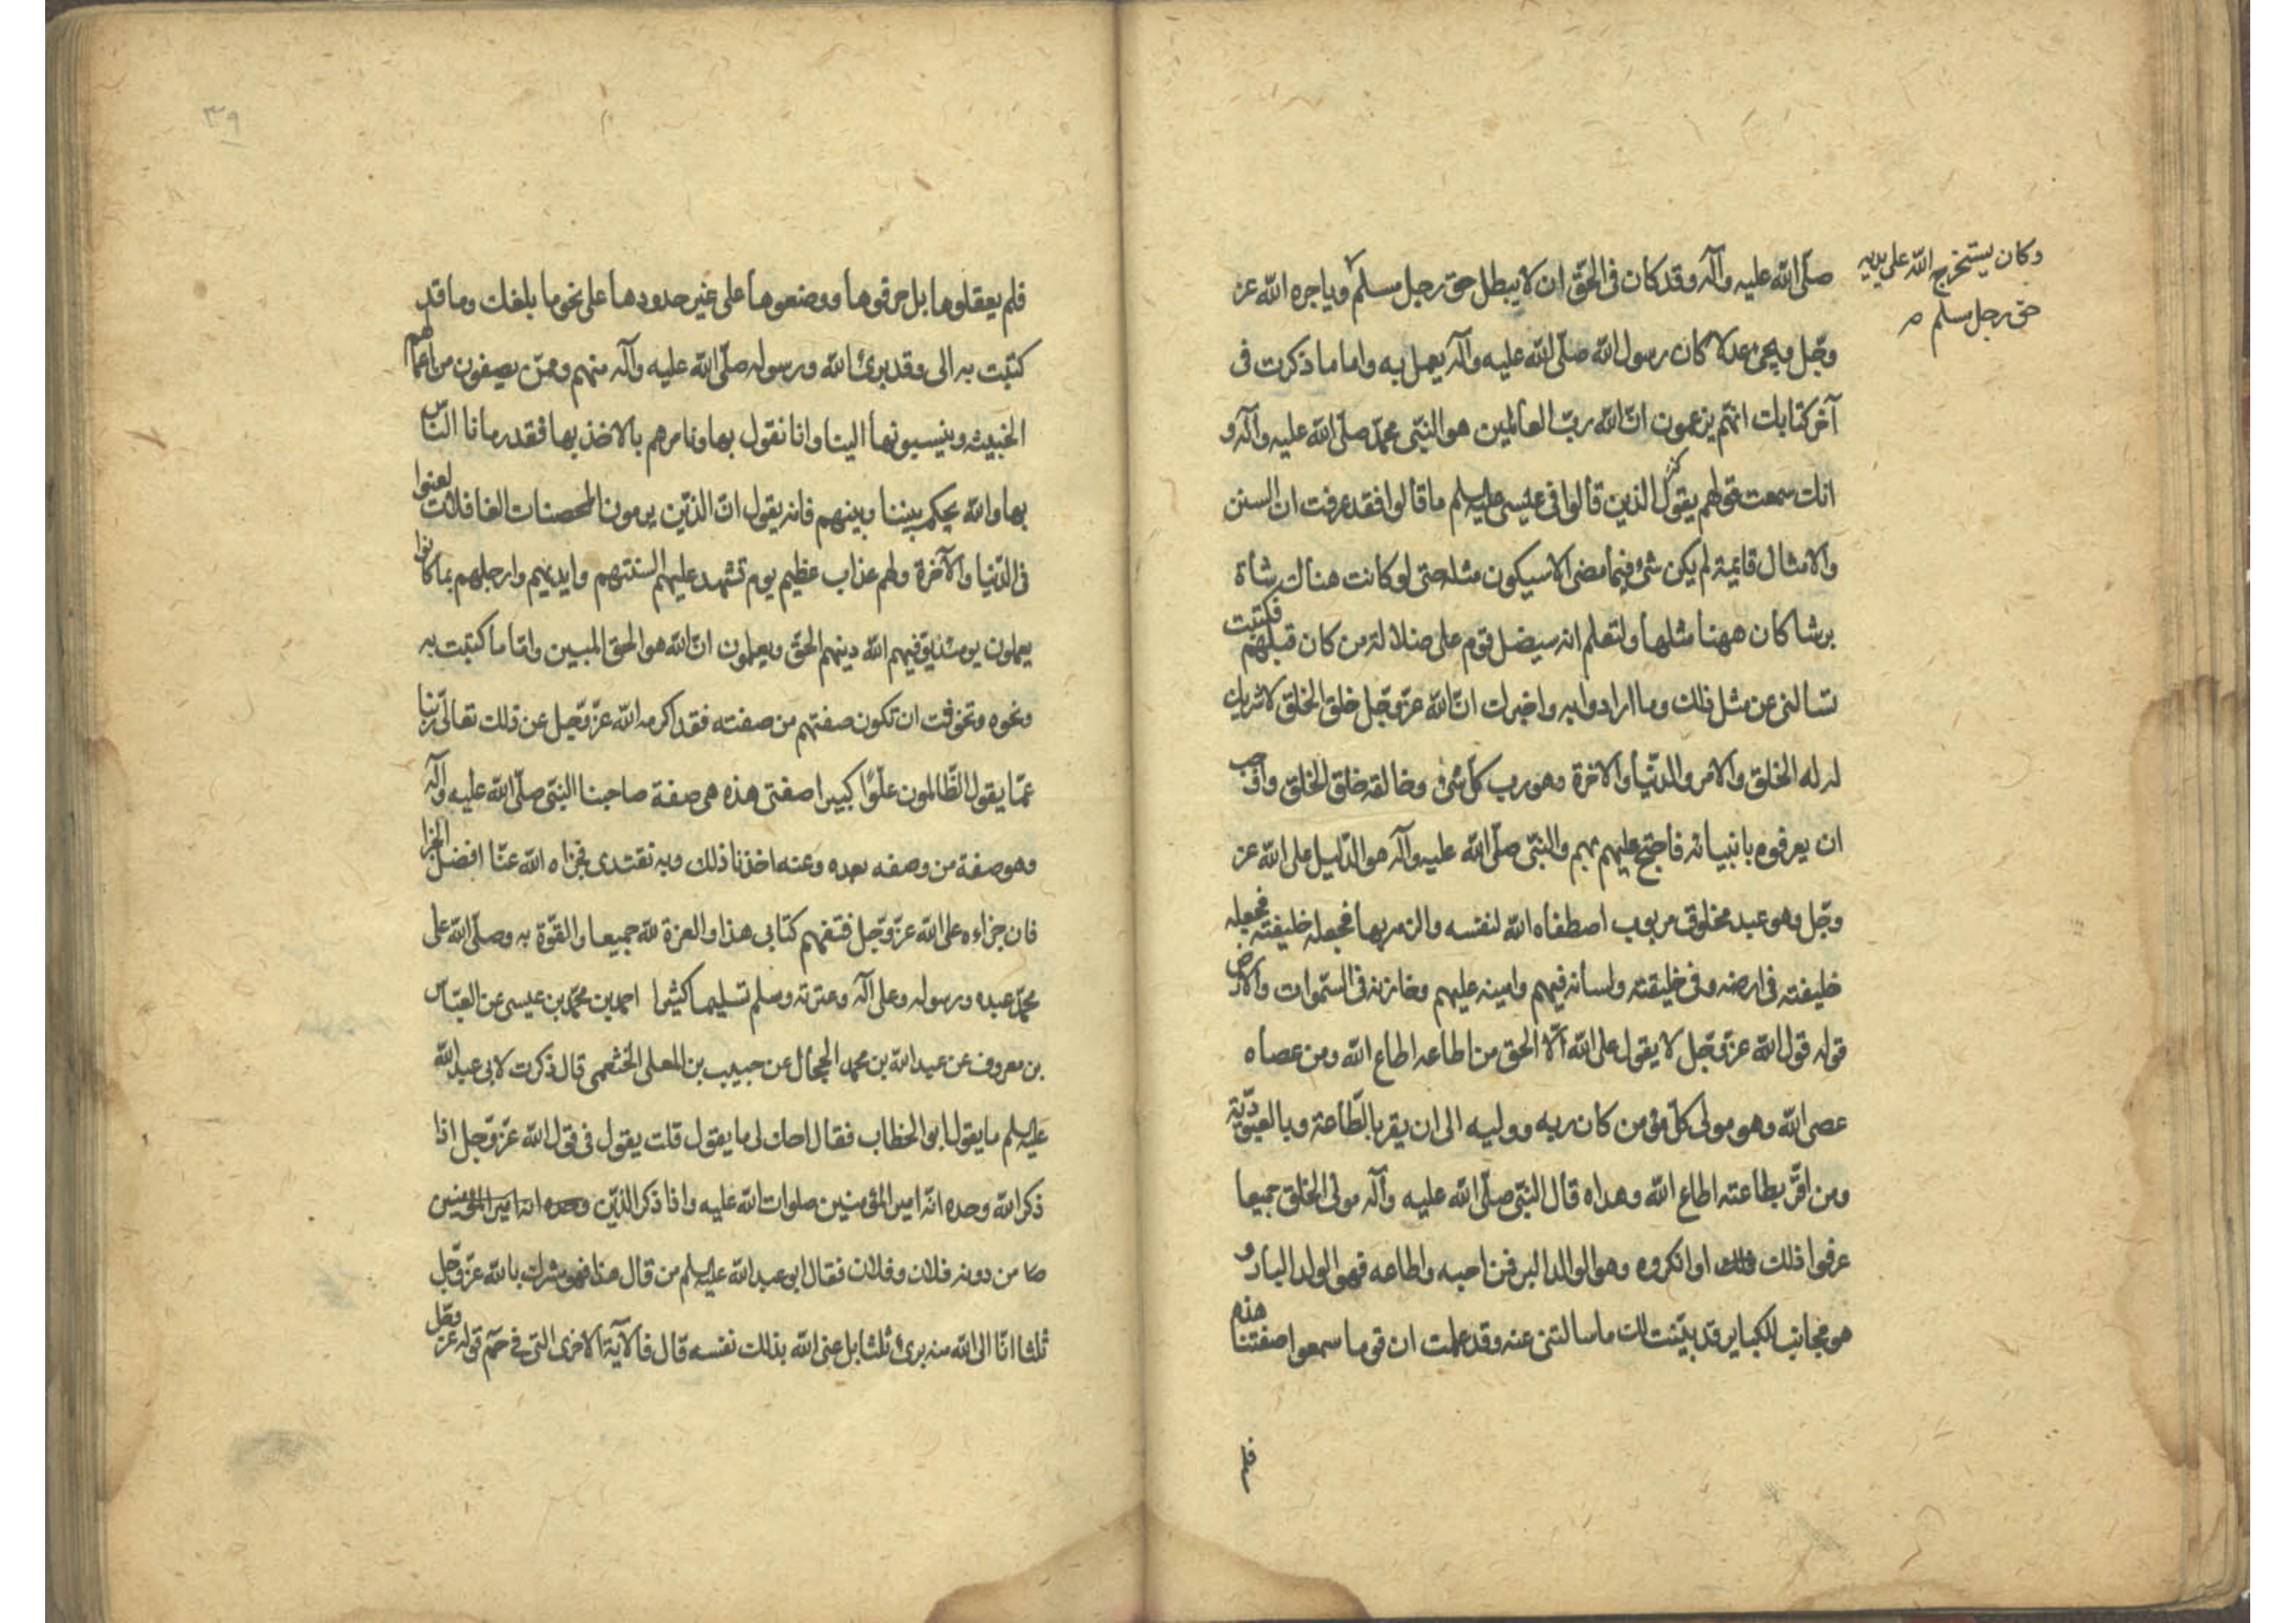 صلّى الله عليه وآله وقد كان في الحقّ ان لا يبطل حق رجل مسلم وياجره الله عز
وكان يستخرج الله على يديه
حق رجل مسلم
وجّل ويحيى عدلا كان رسول الله صلّى الله عليه وآله يعمل به واما ما ذكرت في
آخر كتابك انهم يزعمون انّ الله ربّ العالمين هو النبّي محمّد صلّى الله عليه وآله و
انك سمعت قولهم يقول الذين قالوا في عيسى عليه السلم ما قالوا فقد عرفت ان السنن
والامثال قايمة لم يكن شئ فيما مضى الا سيكون مثله حتى لو كانت هناك شاة
برشا كان ههنا مثلها ولتعلم انه سيضل قوم على ضلالة من كان قبلهم فكتبت
تسالنى عن مثل ذلك وما ارادوا به واخبرك انّ الله عزّ وجّل خلق الخلق لا شريك
له له الخلق والامر والدنّيا والاخرة وهو رب كلّ شئ وخالقه خلق الخلق واوجب
ان يعرفوه بانبيائه فاحتج عليهم بهم والنبّي صلّى الله عليه وآله هو الدّليل على الله عز
وجّل وهو عبد مخلوق مربوب اصطفاه الله لنفسه والزمه بها فجعله خليفته فجعله
خليفته في ارضه وفي خليقته ولسانه فيهم وامينه عليهم وخازنه في السّموات والارض
قوله قول الله عزّ وجّل لا يقول على الله الّا الحق من اطاعه اطاع الله ومن عصاه
عصى الله وهو مولى كلّ مؤمن كان ربه ووليه الى ان يقر بالطّاعة وبالعبوديّة
ومن اقرّ بطاعته اطاع الله وهداه قال النبّي صلّى الله عليه وآله مولى الخلق جميعا
عرفوا ذلك ذلك او انكروه وهو الوالد البر فمن احبه واطاعه فهو الولد البار و
هو مجانب للكباير قد بيّنت لك ما سالتنى عنه وقد علمت ان قوما سمعوا صفتنا هذه
فلم
٣٩
فلم يعقلوها بل حرفوها ووضعوها على غير حدودها على نحو ما بلغك وما قد
كتبت به الى وقد برئ الله ورسوله صلّى الله عليه وآله منهم وممّن يصفون من اعمالهم
الخبيثه وينسبونها الينا وانا نقول بها ونامرهم بالاخذ بها فقد رمانا النّاس
بها والله يحكم بيننا وبينهم فانه يقول انّ الذيّن يرمون المحصنات الغافلات لعنوا
في الدّنيا والآخرة ولهم عذاب عظيم يوم تشهد عليهم السنتهم وايديهم وارجلهم بما كانوا
يعملون يومئذ يوفيهم الله دينهم الحقّ ويعلمون انّ الله هو الحق المبين وامّا ما كتبت به
ونحوه وتخوفت ان تكون صفتهم من صفته فقد اكرمه الله عزّ وجّل عن ذلك تعالى ربّنا
عمّا يقول الظّالمون علوًّا كبيرا صفتى هذه هى صفة صاحبنا النبّي صلّى الله عليه وآله
وهو صفة من وصفه بعده وعنه اخذنا ذلك وبه نقتدى فجزاه الله عنّا افضل الجزا
فان جزاءه على الله عزّ وجّل فتفهم كتابى هذا والعزة لله جميعا والقوّة به وصلّى الله على
محمّد عبده ورسوله وعلى آله وعترته وسلم تسليما كثيرا احمد بن محمّد بن عيسى عن العبّاس
بن معروف عن عبد الله بن محمد الحجال عن حبيب بن المعلى الخثعمى قال ذكرت لابى عبد الله
عليه السلم ما يقول ابو الخطاب فقال احك لى ما يقول قلت يقول في قول الله عزّ وجّل اذا
ذكر الله وحده انّه امير المؤمنين صلوات الله عليه واذا ذكر الذيّن وحده انه امير المؤمنين
من دونه فلان وفلان فقال ابو عبد الله عليه السلم من قال هذا فهو مشرك بالله عزّ وجّل
ثلثا انّا الى الله منه برئ ثلثا بل عنى الله بذلك نفسه قال فالآية الاخرى التي في حم قوله عز وجل